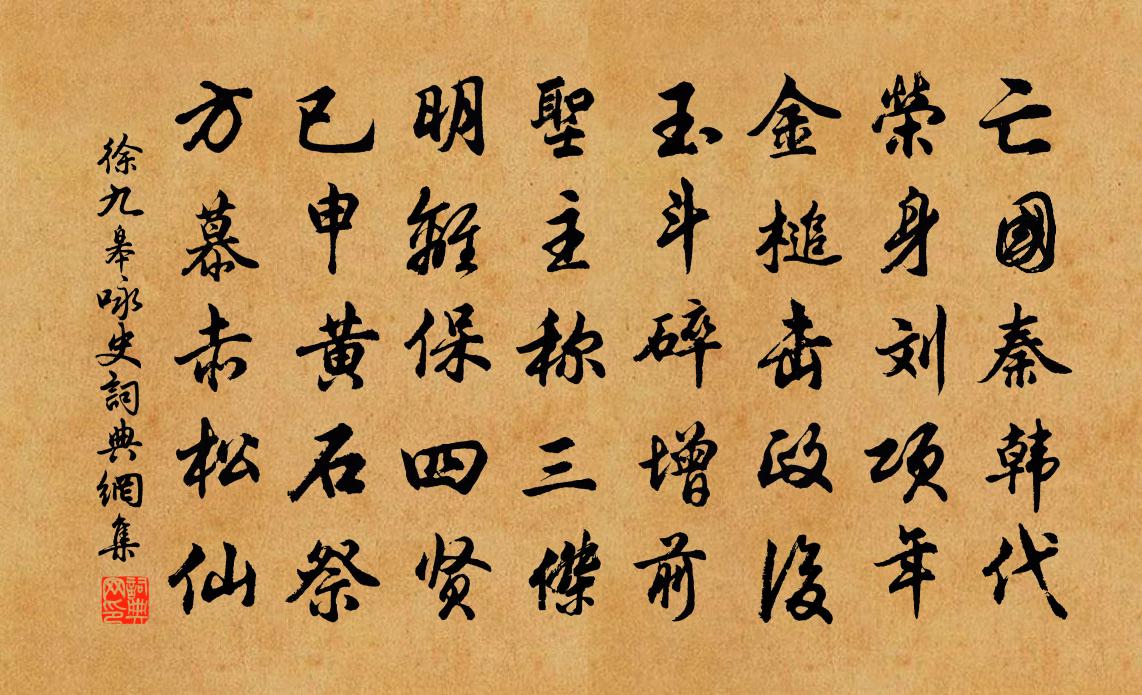 亡國秦韩代
榮身刘项年
金槌击政後
玉斗碎增前
聖主称三傑
明離保四贤
已申黄石祭
方慕赤松仙
徐九皋咏史詞典網集
詞典网印